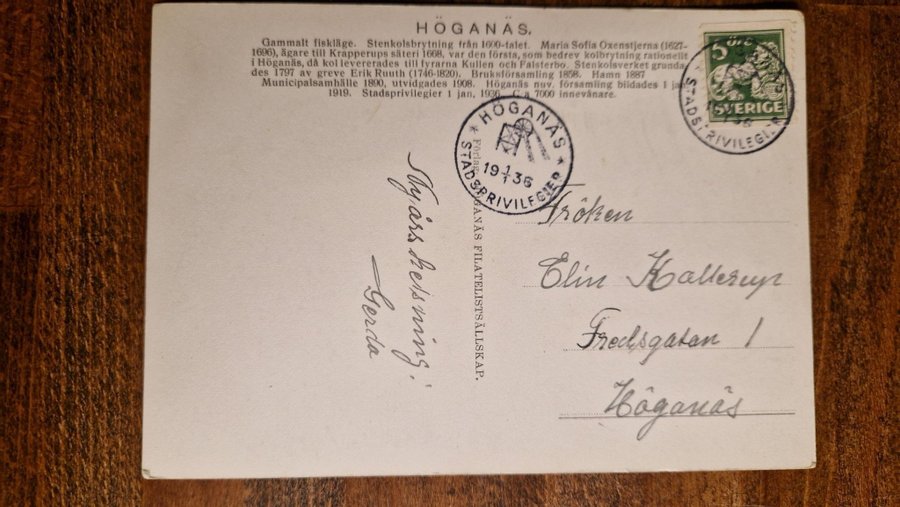 HÖGANÄS.
Gammalt fiskläge. Stenkolsbrytning från 1600-talet. Maria Sofia Oxenstjerna (1627-
1696), ägare till Krapperups säteri 1668, var den första, som bedrev kolbrytning rationellt
i Höganäs, då kol levererades till fyrarna Kullen och Falsterbo. Stenkolsverket grunda-
des 1797 av greve Erik Ruuth (1746-1820). Bruksförsamling 1858. Hamn 1887
Municipalsamhälle 1890, utvidgades 1908. Höganäs nuv. församling bildades 1 jan.
1919. Stadsprivilegier 1 jan. 1936. C:a 7000 innevånare.
5 ÖRE
SVERIGE
STADSPRIVILEGIER
36
HÖGANÄS
19 1/1 36
STADSPRIVILEGIER
Förlag: HÖGANÄS FILATELISTSÄLLSKAP.
Nyårshelsning!
Gerda
Fröken
Elin
Fredsgatan 1
Höganäs